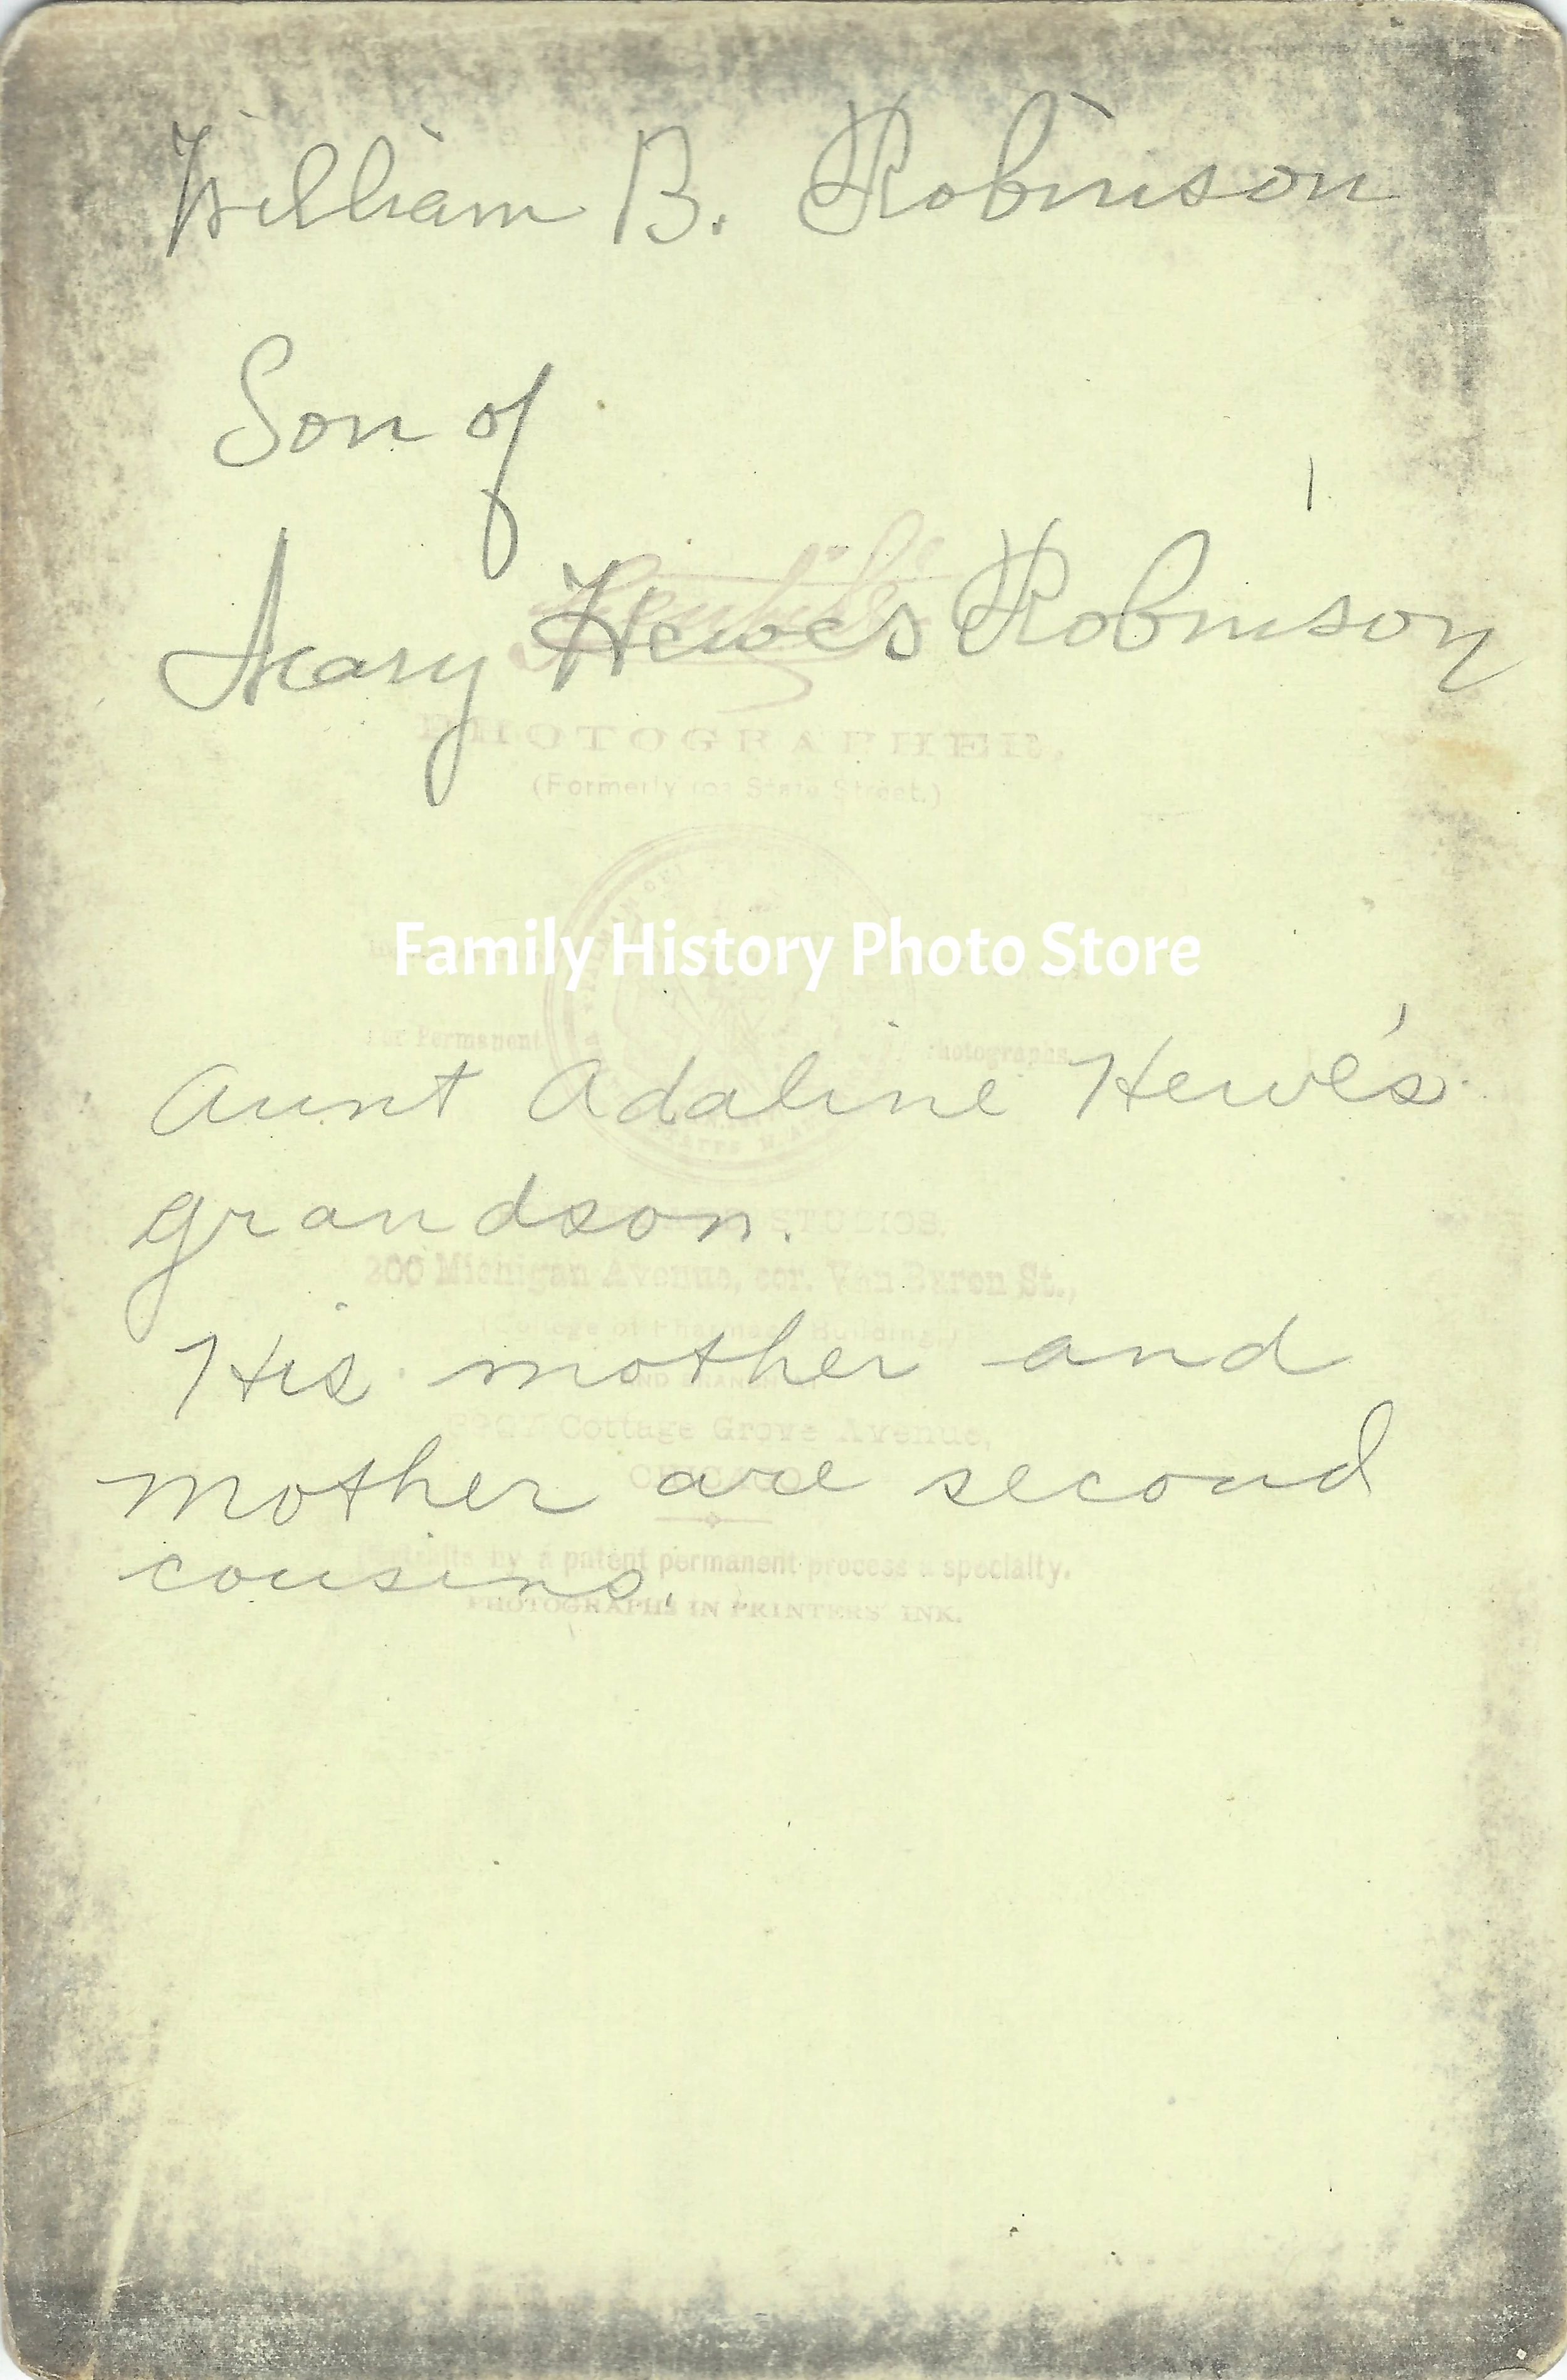 William B. Robinson
Son of
Mary Hewes Robinson
PHOTOGRAPHER.
(Formerly State Street.)
Family History Photo Store
For Permanent Photographs
Aunt Adaline Hewe's
grandson.
STUDIOS.
200 Michigan Avenue, cor. Van Buren St.,
(College of Pharmacy Building)
His mother and
Cottage Grove Avenue,
mother are second
CHICAGO
Portraits by a patent permanent process a specialty.
cousins.
PHOTOGRAPHS IN PRINTERS' INK.